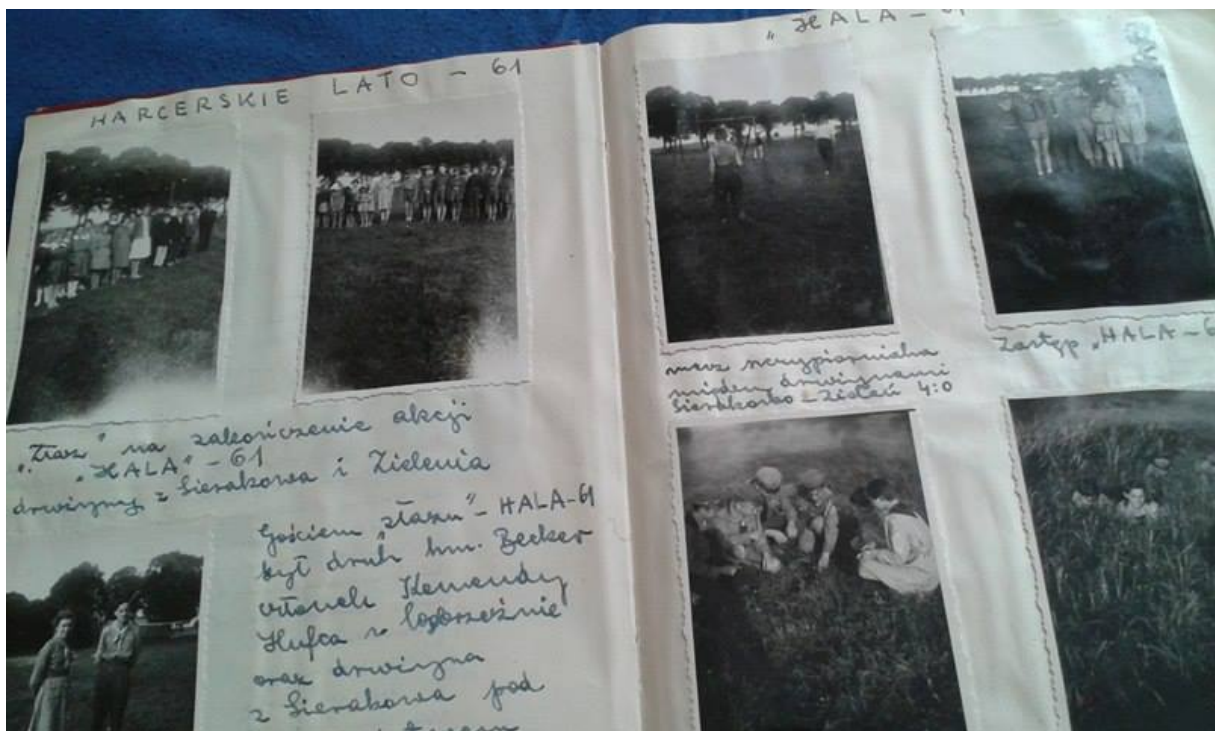 HARCERSKIE LATO - 61
„Złaz" na zakończenie akcji
„HALA" - 61
drużyny z Sierakowa i Zielenia
Gościem „złazu" - HALA-61
był druh hm. Becker
członek Komendy
Hufca w
oraz drużyna
z Sierakowa pod
„HALA - 61
mecz
między drużynami
Sierakowo - Zieleń 4:0
Zastęp „HALA - 6